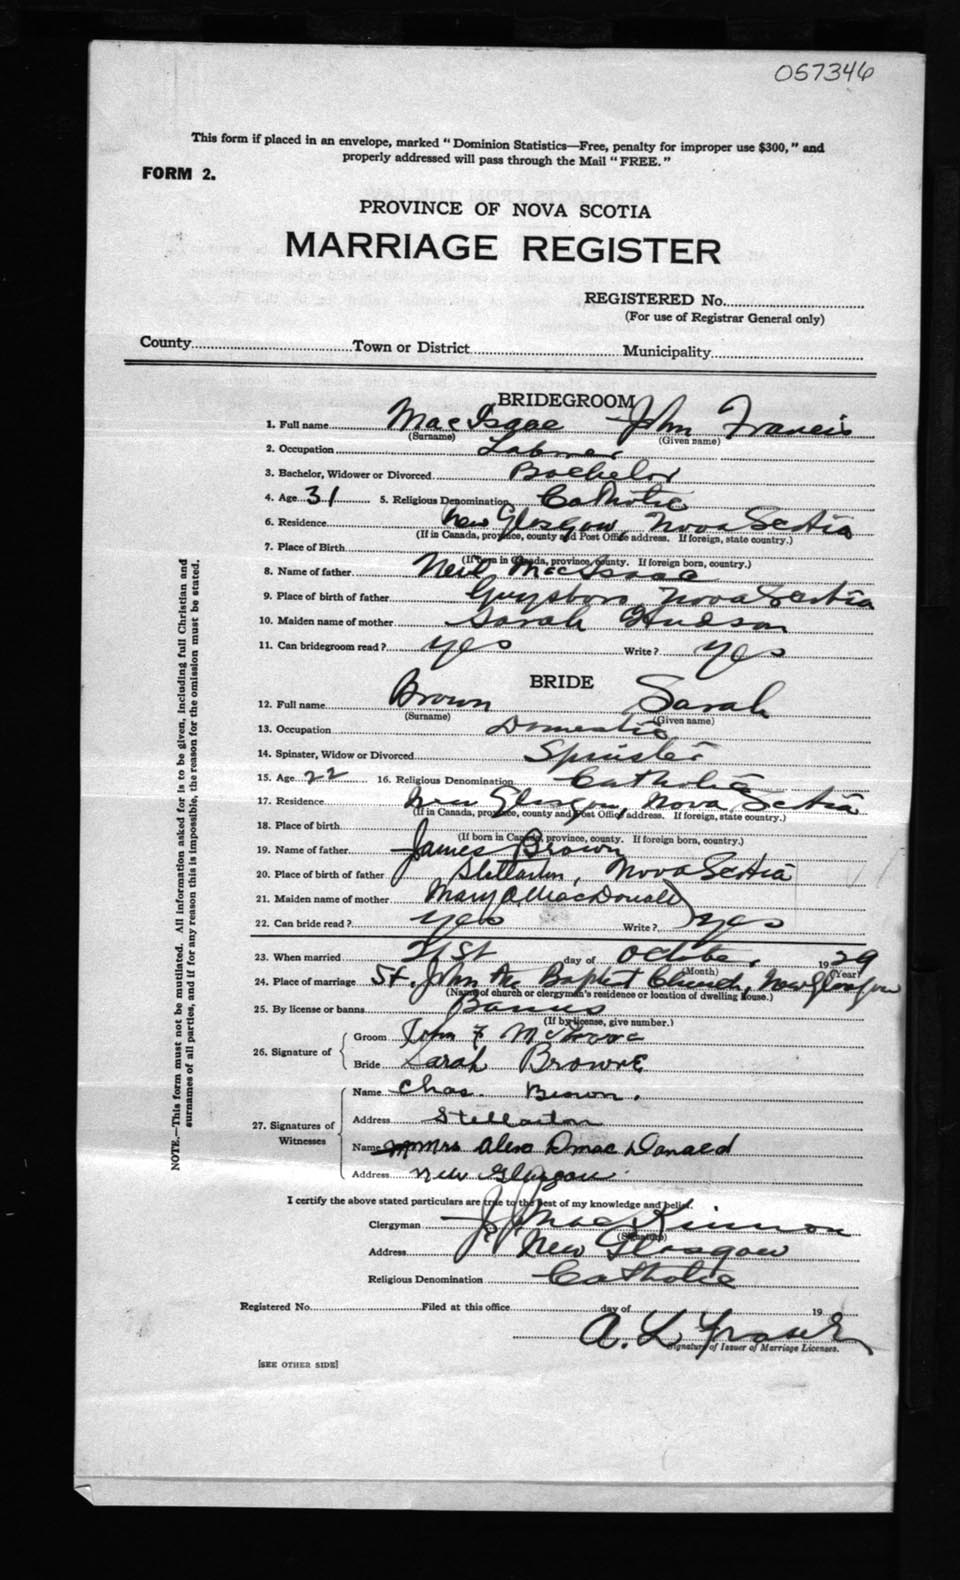 057346
This form if placed in an envelope, marked "Dominion Statistics—Free, penalty for improper use $300," and
properly addressed will pass through the Mail "FREE."
FORM 2.
PROVINCE OF NOVA SCOTIA
MARRIAGE REGISTER
REGISTERED No.
(For use of Registrar General only)
County Town or District Municipality
BRIDEGROOM
1. Full name MacIsaac John Francis
(Surname) (Given name)
2. Occupation Laborer
3. Bachelor, Widower or Divorced Bachelor
4. Age 31 5. Religious Denomination Catholic
6. Residence New Glasgow, Nova Scotia
(If in Canada, province, county and Post Office address. If foreign, state country.)
7. Place of Birth
(If born in Canada, province, county. If foreign born, country.)
8. Name of father Neil MacIsaac
9. Place of birth of father Guysboro, Nova Scotia
10. Maiden name of mother Sarah Hudson
11. Can bridegroom read? yes Write? yes
BRIDE
12. Full name Brown Sarah
(Surname) (Given name)
13. Occupation Domestic
14. Spinster, Widow or Divorced Spinster
15. Age 22 16. Religious Denomination Catholic
17. Residence New Glasgow, Nova Scotia
(If in Canada, province, county and Post Office address. If foreign, state country.)
18. Place of birth
(If born in Canada, province, county. If foreign born, country.)
19. Name of father James Brown
20. Place of birth of father Stellarton, Nova Scotia
21. Maiden name of mother Mary A. MacDonald
22. Can bride read? yes Write? yes
23. When married 21st day of October, 1929
(Month) (Year)
24. Place of marriage St. John the Baptist Church, New Glasgow
(Name of church or clergyman's residence or location of dwelling house.)
25. By license or banns Banns
(If by license, give number.)
26. Signature of Groom John F McIsaac
Bride Sarah Browne
27. Signatures of Witnesses Name Chas. Brown.
Address Stellarton
Name Mrs Alex D MacDonald
Address New Glasgow.
I certify the above stated particulars are true to the best of my knowledge and belief.
Clergyman J. J. MacKinnon
(Signature)
Address New Glasgow
Religious Denomination Catholic
Registered No. Filed at this office day of 19
A. L. Fraser
Signature of Issuer of Marriage Licenses.
[SEE OTHER SIDE]
NOTE.—This form must not be mutilated. All information asked for is to be given, including full Christian and
surnames of all parties, and if for any reason this is impossible, the reason for the omission must be stated.